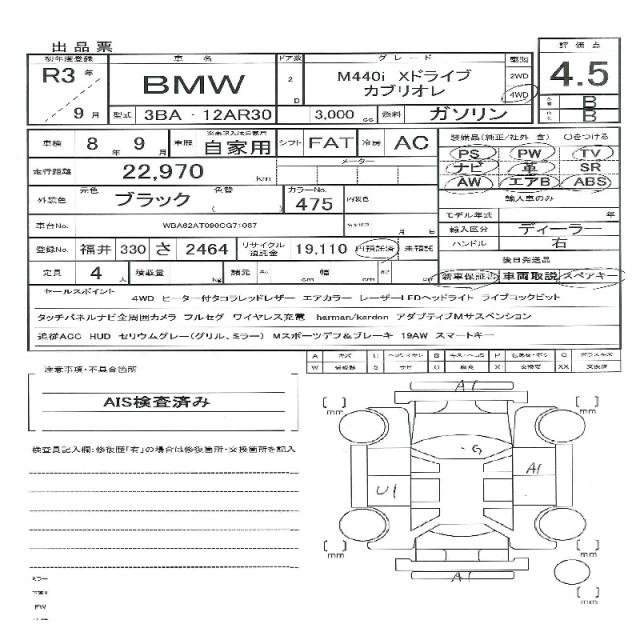 出品票
初年度登録 車名 ドア数 グレード 型別 評価点
R3年 BMW 2 D M440i Xドライブ 2WD 4.5
カブリオレ 4WD
9月 B
型式 3BA・12AR30 3,000 cc 燃料 ガソリン B
車検 8年 9月 車歴 自家用 シフト FAT 冷房 AC 装備品(純正/社外 含) ○をつける
PS PW TV
走行距離 22,970 km メーター ナビ 革 SR
AW エアB ABS
外装色 元色 ブラック 色替 ( ) カラーNo. 475 内装色 輸入車のみ
モデル年式 年
車台No. WBA62AT090CG71087 月 日 輸入区分 ディーラー
登録No. 福井 330 さ 2464 リサイクル預託金 19,110 円 預託済 未預託 ハンドル 右
後日発送品
定員 4人 積載量 kg 諸元 cm 幅 cm cm 新車保証書 車両取説 スペアキー
セールスポイント 4WD ヒーター付タコラレッドレザー エアカラー レーザーLEDヘッドライト ライブコックピット
タッチパネルナビ全周囲カメラ フルセグ ワイヤレス充電 harman/kardon アダプティブMサスペンション
追従ACC HUD セリウムグレー(グリル、ミラー) Mスポーツデフ&ブレーキ 19AW スマートキー
A U B P C
W S X 交換済 XX
注意事項・不具合箇所
AIS検査済み
検査員記入欄:修復歴「有」の場合は修復箇所・交換箇所を記入
A1
[ ] mm [ ] mm
・G
A1
U1
[ ] mm [ ] mm
A1
[ ] mm
ミラー
PW